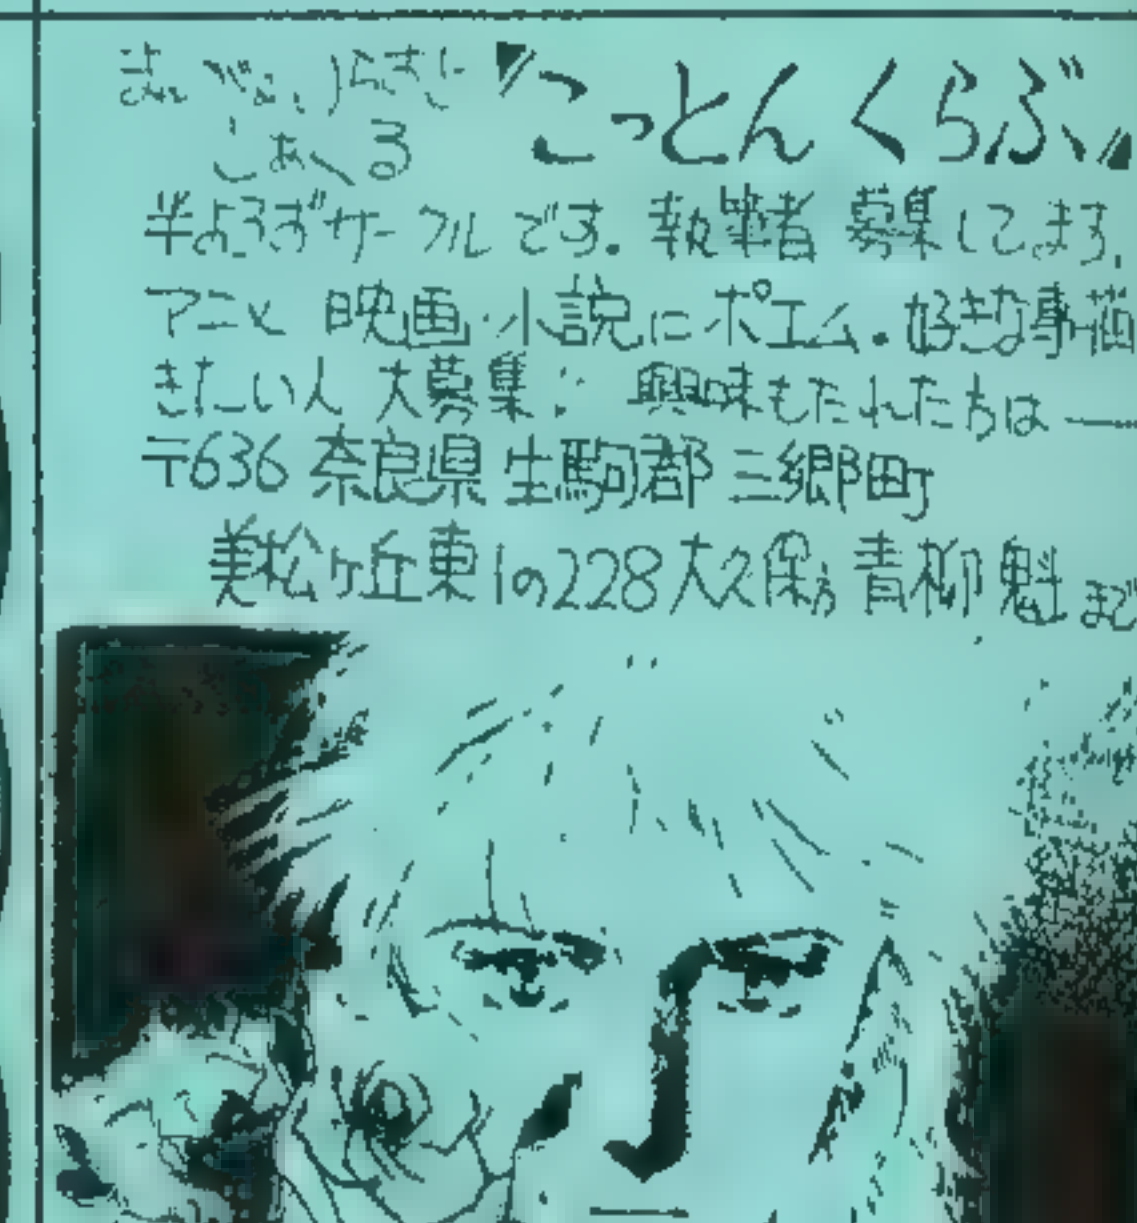 『こっとんくらぶ』
さあくる
半よろずサークルです。執筆者 募集してます。
アニメ 映画・小説にポエム。好きな事描
きたい人 大募集! 興味もたれた方は——
〒636 奈良県 生駒郡 三郷町
美松ヶ丘東1の228 大久保方 青柳 魁 まで